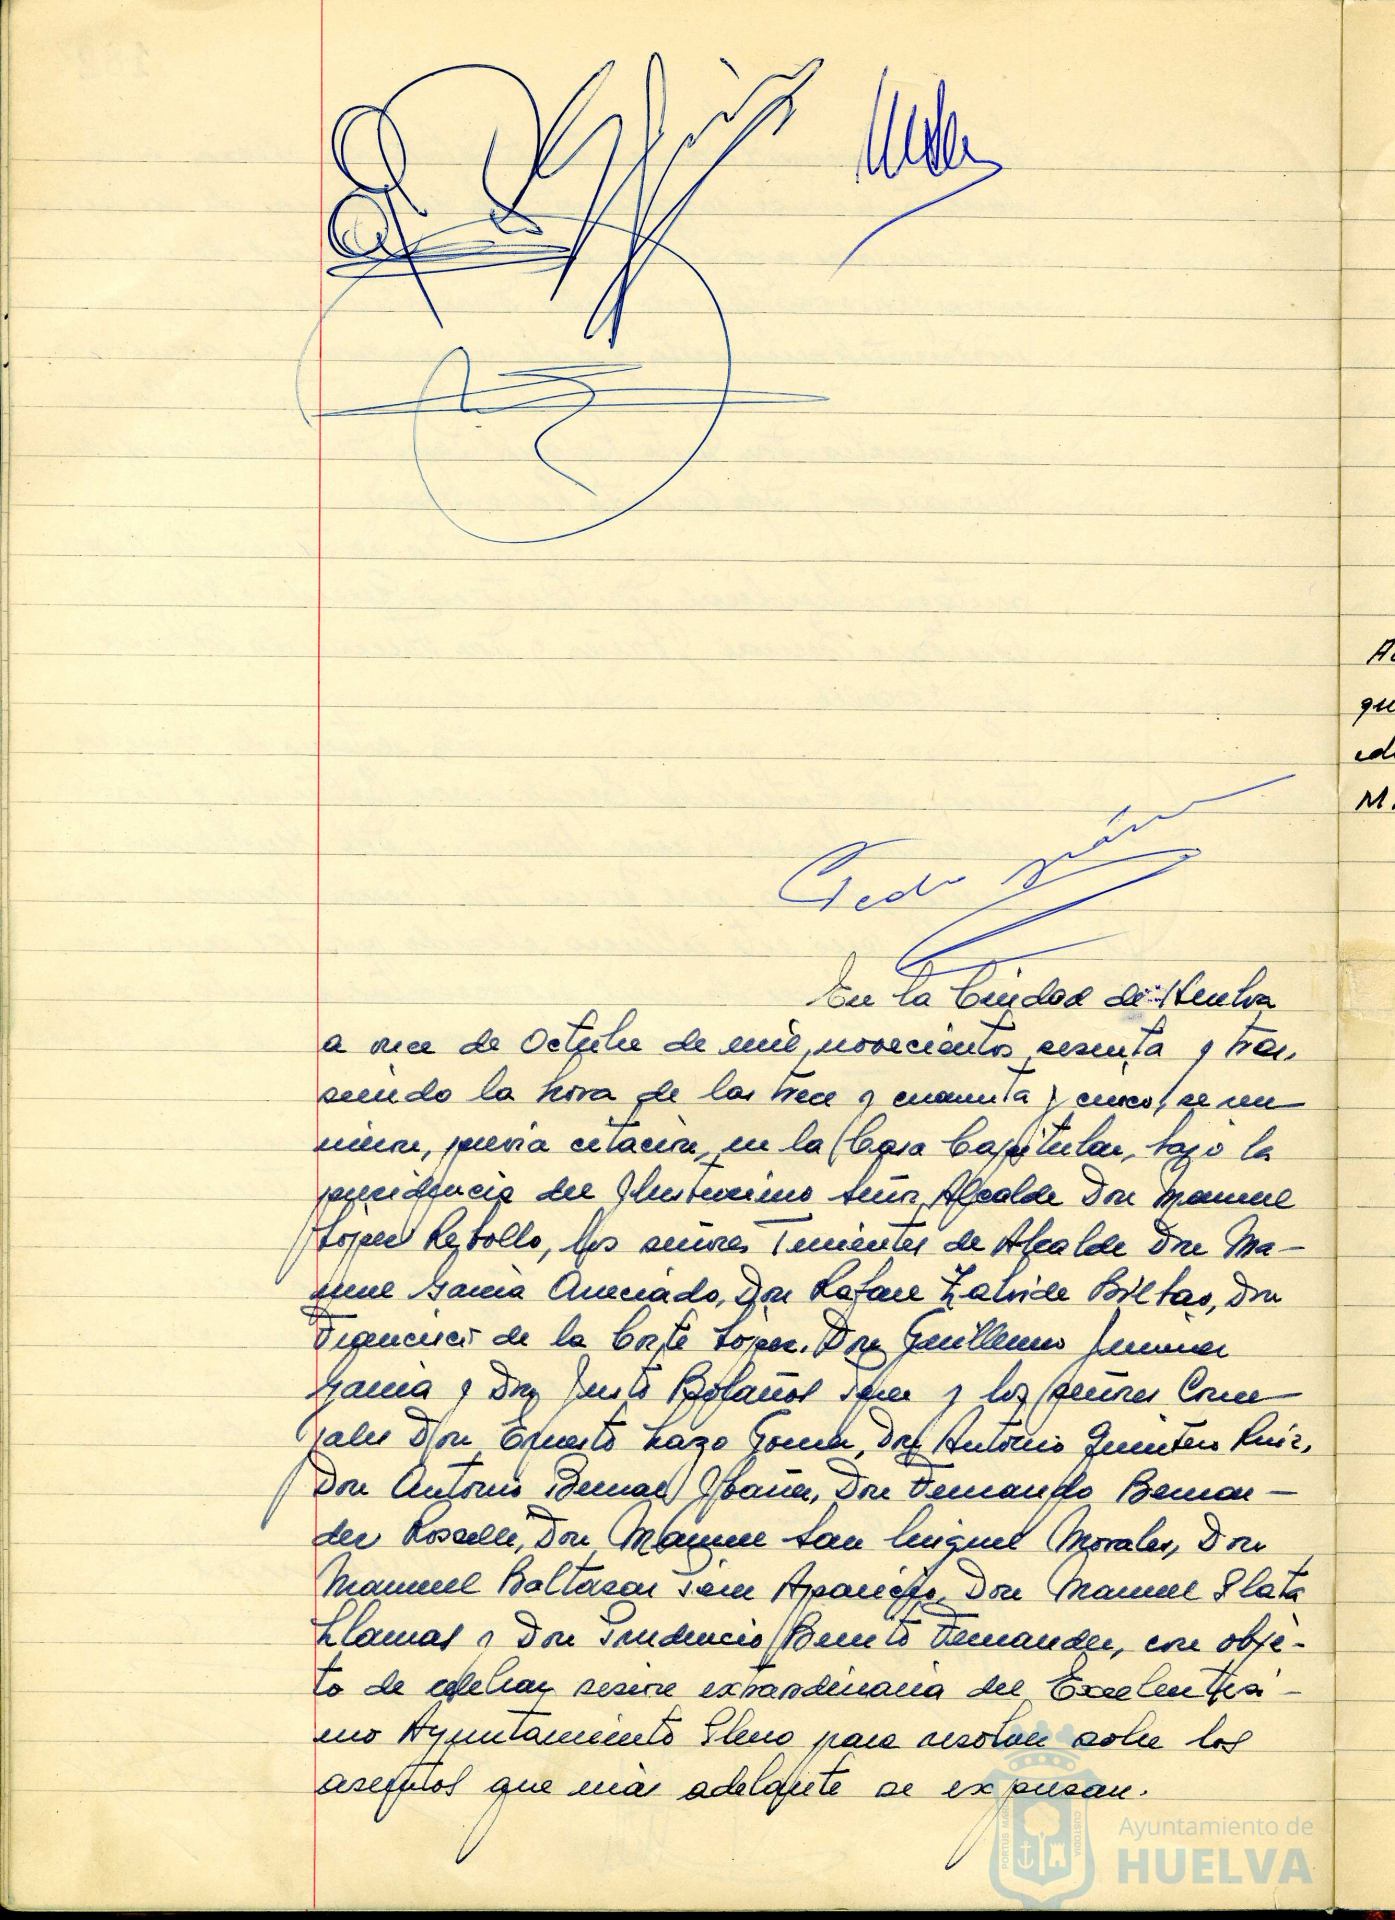 Pedro
En la Ciudad de Huelva
a once de Octubre de mil novecientos sesenta y tres,
siendo la hora de las trece y cuarenta y cinco, se reu-
nieron, previa citación, en la Casa Capitular, bajo la
presidencia del Ilustrísimo Señor Alcalde Don Manuel
López Rebollo, los señores Tenientes de Alcalde Don Ma-
nuel García Anunciado, Don Rafael Zalvide Bilbao, Don
Francisco de la Corte López, Don Guillermo Jiménez
García y Don Justo Bolaños Pérez y los señores Conce-
jales Don Ernesto Lazo Gómez, Don Antonio Quintero Ruiz,
Don Antonio Bernal Ibáñez, Don Fernando Bernan-
dez Don Manuel San Miguel Morales, Don
Manuel Baltasar Pérez Aparicio, Don Manuel Plata
Llamas y Don Prudencio Benito Fernández, con obje-
to de celebrar sesión extraordinaria del Excelentísi-
mo Ayuntamiento Pleno para resolver sobre los
asuntos que más adelante se expresan.
Ayuntamiento de
HUELVA
PORTUS MARIS
CUSTODIA